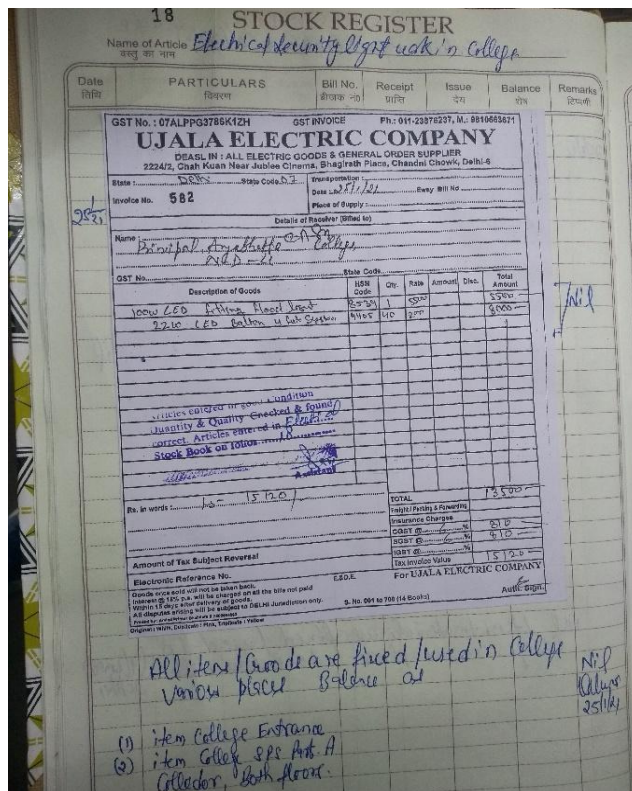 18
STOCK REGISTER
Name of Article Electrical Security light work in College
वस्तु का नाम
Date PARTICULARS Bill No. Receipt Issue Balance Remarks
तिथि विवरण बीजक नं० प्राप्ति देय शेष टिप्पणी
GST No. : 07ALPPG3786K1ZH GST INVOICE Ph.: 011-23878237, M.: 9810663621
UJALA ELECTRIC COMPANY
DEASL IN : ALL ELECTRIC GOODS & GENERAL ORDER SUPPLIER
2224/2, Chah Kuan Near Jublee Cinema, Bhagirath Place, Chandni Chowk, Delhi-6
State : Delhi State Code 07 Transportation :
Date 25/1/21 Eway Bill No
Invoice No. 582
Place of Supply :
25/1/21
Details of Receiver (Billed to)
Name : Principal Aryabhatta College
GST No. State Code
Description of Goods HSN Code Qty. Rate Amount Disc. Total Amount
100W LED Flood light 1 5500 5500
LED Batten 9405 40 200 8000
Nil
Articles entered in good Condition
Quantity & Quality Checked & found
correct. Articles entered in
Stock Book on folios 18
Assistant
Rs. in words : 15120/
TOTAL 13500
Freight / Packing & Forwarding
Insurance Charges
CGST @ 6 % 810
SGST @ 6 % 810
IGST @ %
Tax Invoice Value 15120
Amount of Tax Subject Reversal
Electronic Reference No. E.&O.E. For UJALA ELECTRIC COMPANY
Goods once sold will not be taken back.
Interest @ 18% p.a. will be charged on all the bills not paid
Within 15 days after delivery of goods.
All disputes arising will be subject to DELHI Jurisdiction only. S. No. 001 to 700 (14 Books) Auth. Sign.
Original : White, Duplicate : Pink, Triplicate : Yellow
All items/Goods are fixed/used in College
various places Balance as Nil
25/1/21
(1) item College Entrance
(2) item College SPS Part A
Colledor, Both floors.